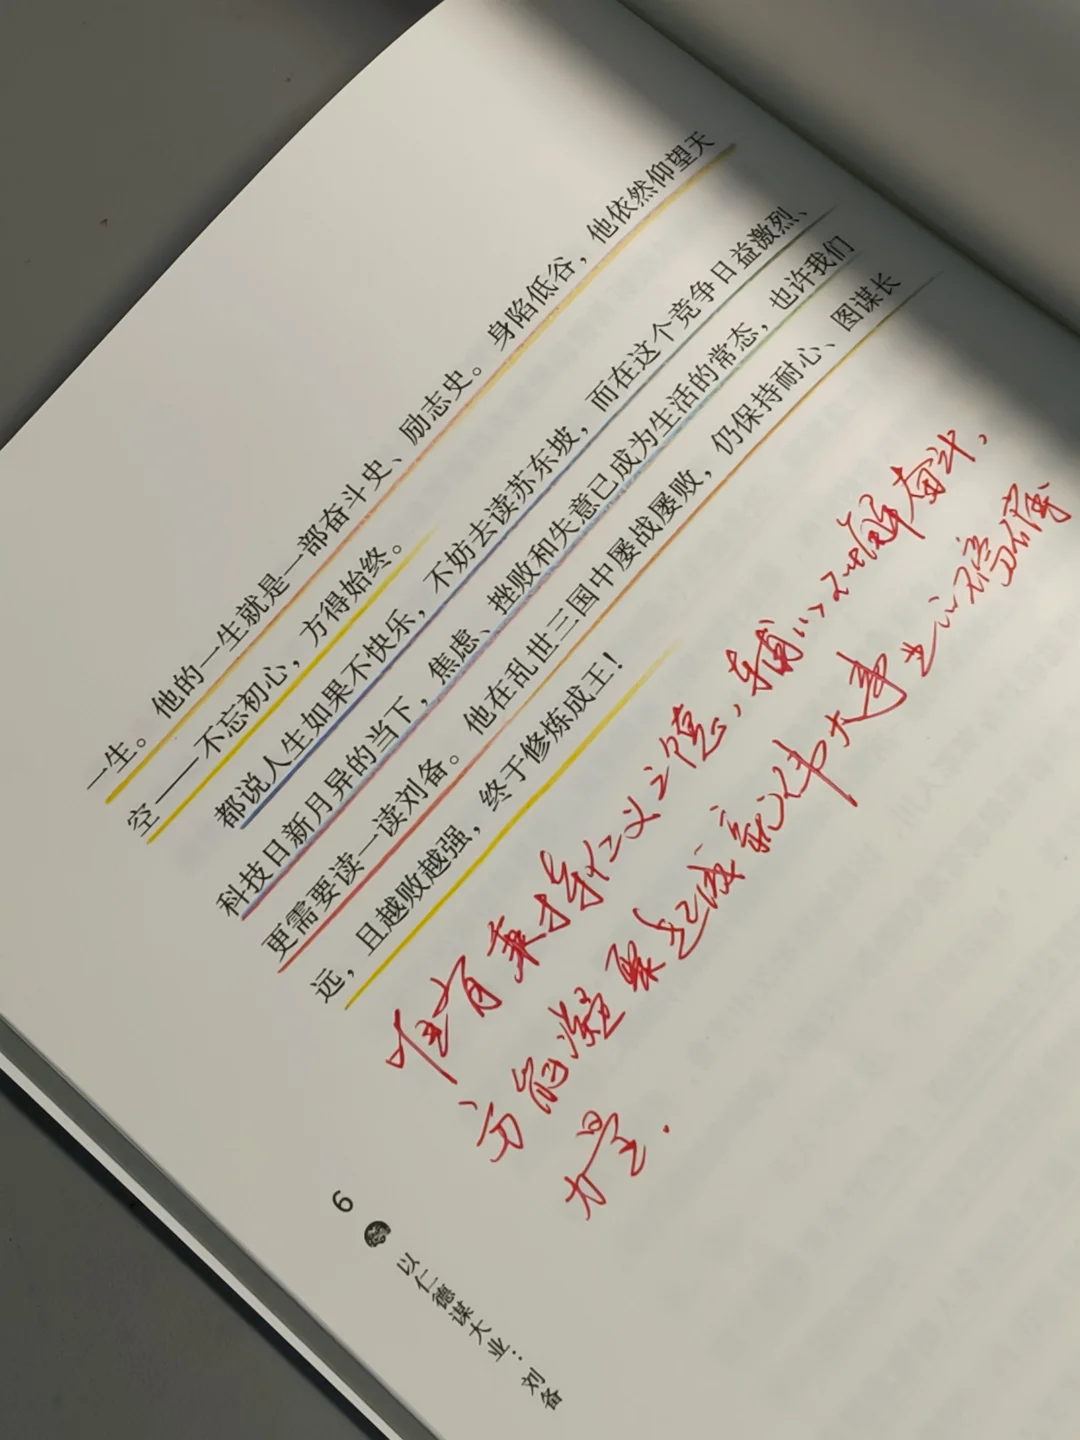 一生。他的一生就是一部奋斗史、励志史。身陷低谷，他依然仰望天
空——不忘初心，方得始终。
都说人生如果不快乐，不妨去读苏东坡，而在这个竞争日益激烈、
科技日新月异的当下，焦虑、挫败和失意已成为生活的常态，也许我们
更需要读一读刘备。他在乱世三国中屡战屡败，仍保持耐心、图谋长
远，且越败越强，终于修炼成王！
唯有秉持仁义之德，辅以不懈奋斗，
方能凝聚起成就伟大事业的磅礴
力量.
6
以仁德谋大业：刘备